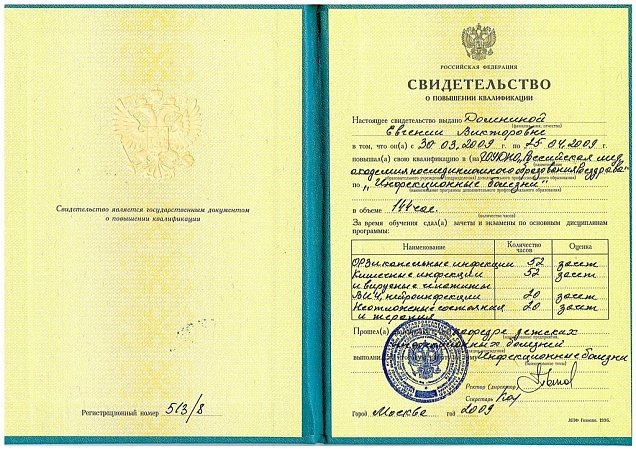 Свидетельство является государственным документом
о повышении квалификации
Регистрационный номер 513/8
РОССИЙСКАЯ ФЕДЕРАЦИЯ
СВИДЕТЕЛЬСТВО
О ПОВЫШЕНИИ КВАЛИФИКАЦИИ
Настоящее свидетельство выдано Доминой
(фамилия, имя, отчество)
Евгении Викторовне
в том, что он(а) с 30 03. 2009 г. по 25 04. 2009 г.
повышал(а) свою квалификацию в (на) Российская мед.
академия последипломного образования Росздрава"
по „Инфекционные болезни"
(наименование программы дополнительного профессионального образования)
в объеме 144 час.
(количество часов)
За время обучения сдал(а) зачеты и экзамены по основным дисциплинам
программы:
Наименование Количество часов Оценка
ОРЗ и капельные инфекции 52 зачет
Кишечные инфекции 52 зачет
и вирусные гепатиты
ВИЧ, нейроинфекции 20 зачет
Неотложные состояния 20 зачет
и терапия
Прошел(а) кафедре детских
инфекционных болезней
выполнил Инфекционные болезни
Ректор (директор)
Секретарь
Город Москва год 2009